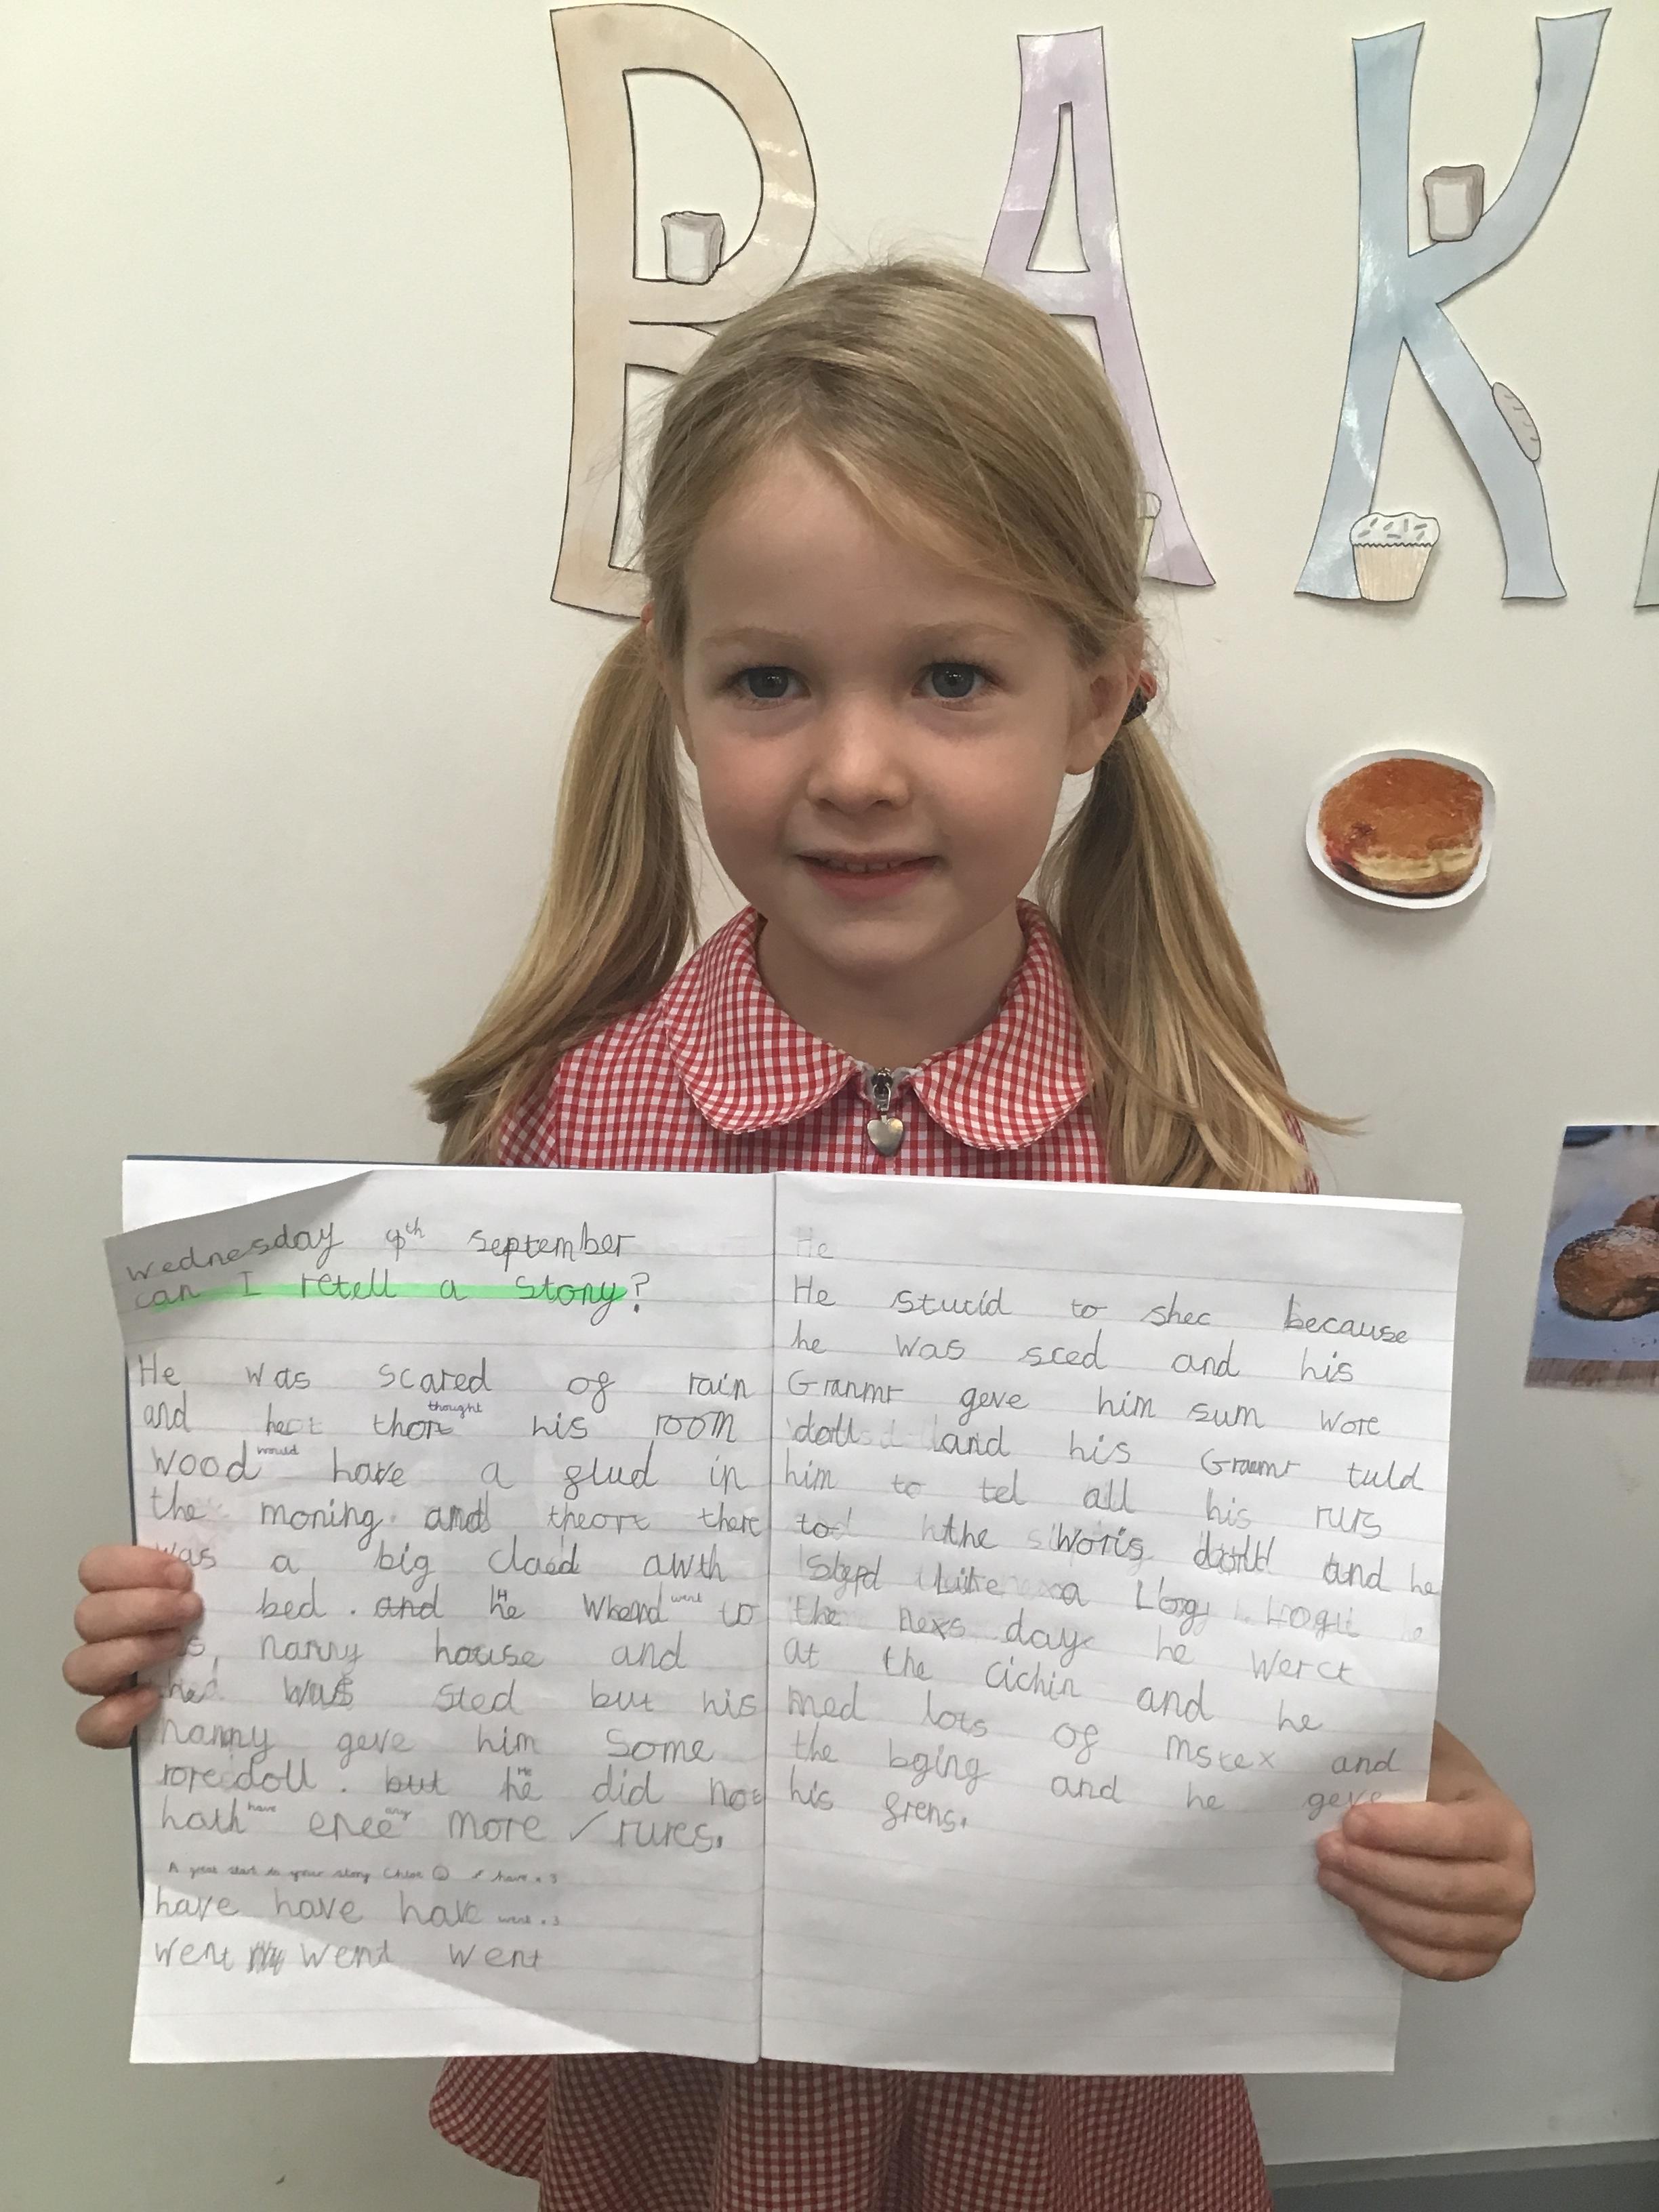 BAK
wednesday 9th september
can I retell a story?
He was scared of rain
and thought his room
wood would have a glud in
the moning and theort there
was a big claed awth
bed. and He whend went to
nanny house and
was sted but his
nanny geve him some
rore doll. but He did not
hath have enee any more ✓ rures.
A great start to your story Chloe ☺ have x 3
have have have went x 3
went went went
He
He stucid to shec because
he was sced and his
Granmr geve him sum wore
doll and his Granmr tuld
him to tel all his rurs
to the woris doll and he
Slepd Like a Logg
the nexs day he werct
at the cichin and he
med lots of mstex and
the bging and he geve
his frens.